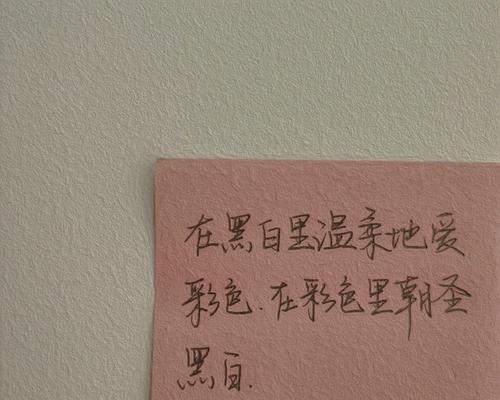 在黑白里温柔地爱
彩色.在彩色里朝圣
黑白.